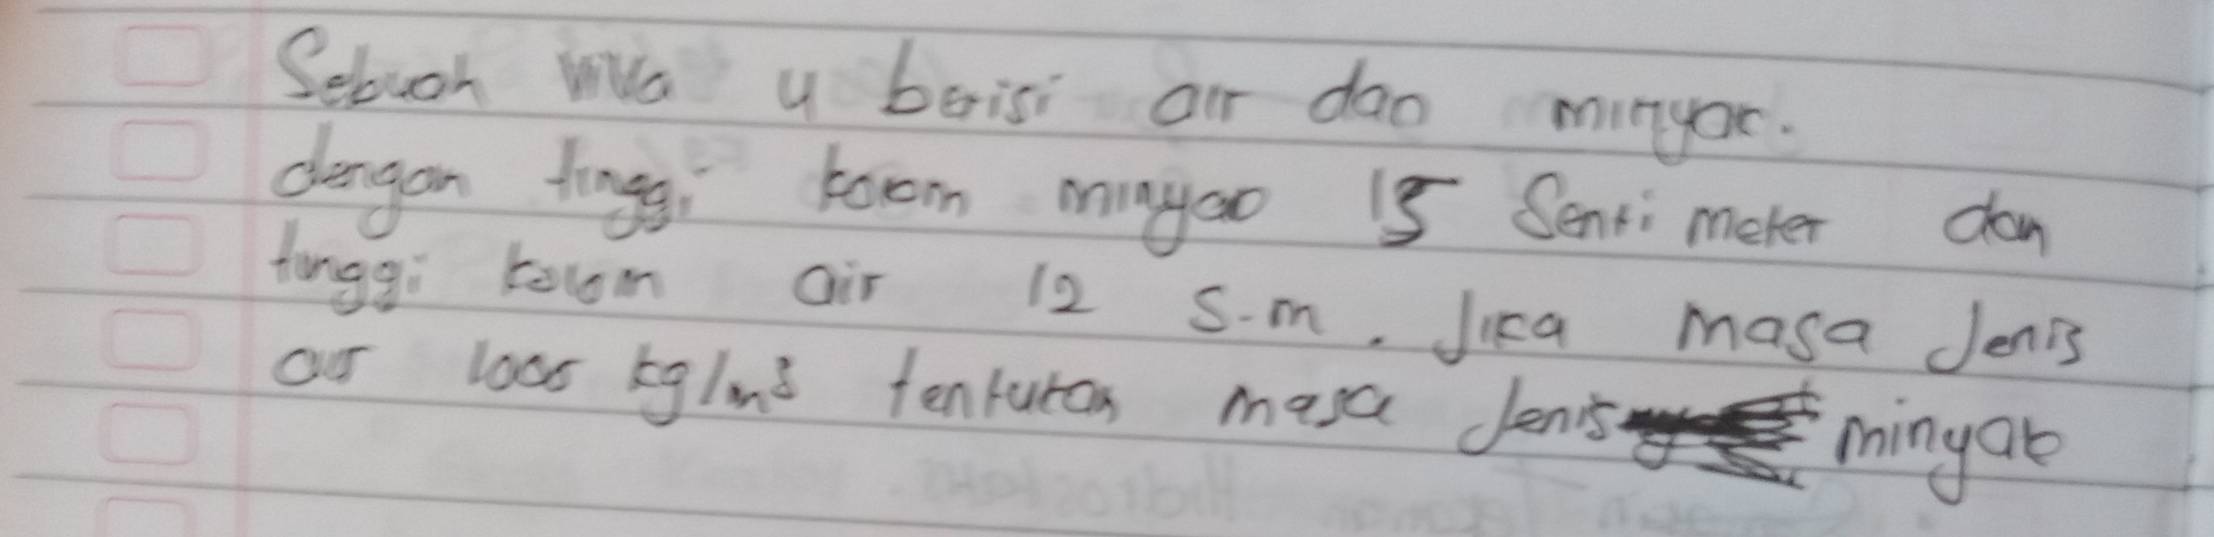 Sebuah u berisi air dan minyak.
dengan tinggi kolom minyak 15 Senti meter dan
tinggi kolom air 12 s.m. Jika masa Jenis
air kg/m³ tentukan masa Jenis minyak